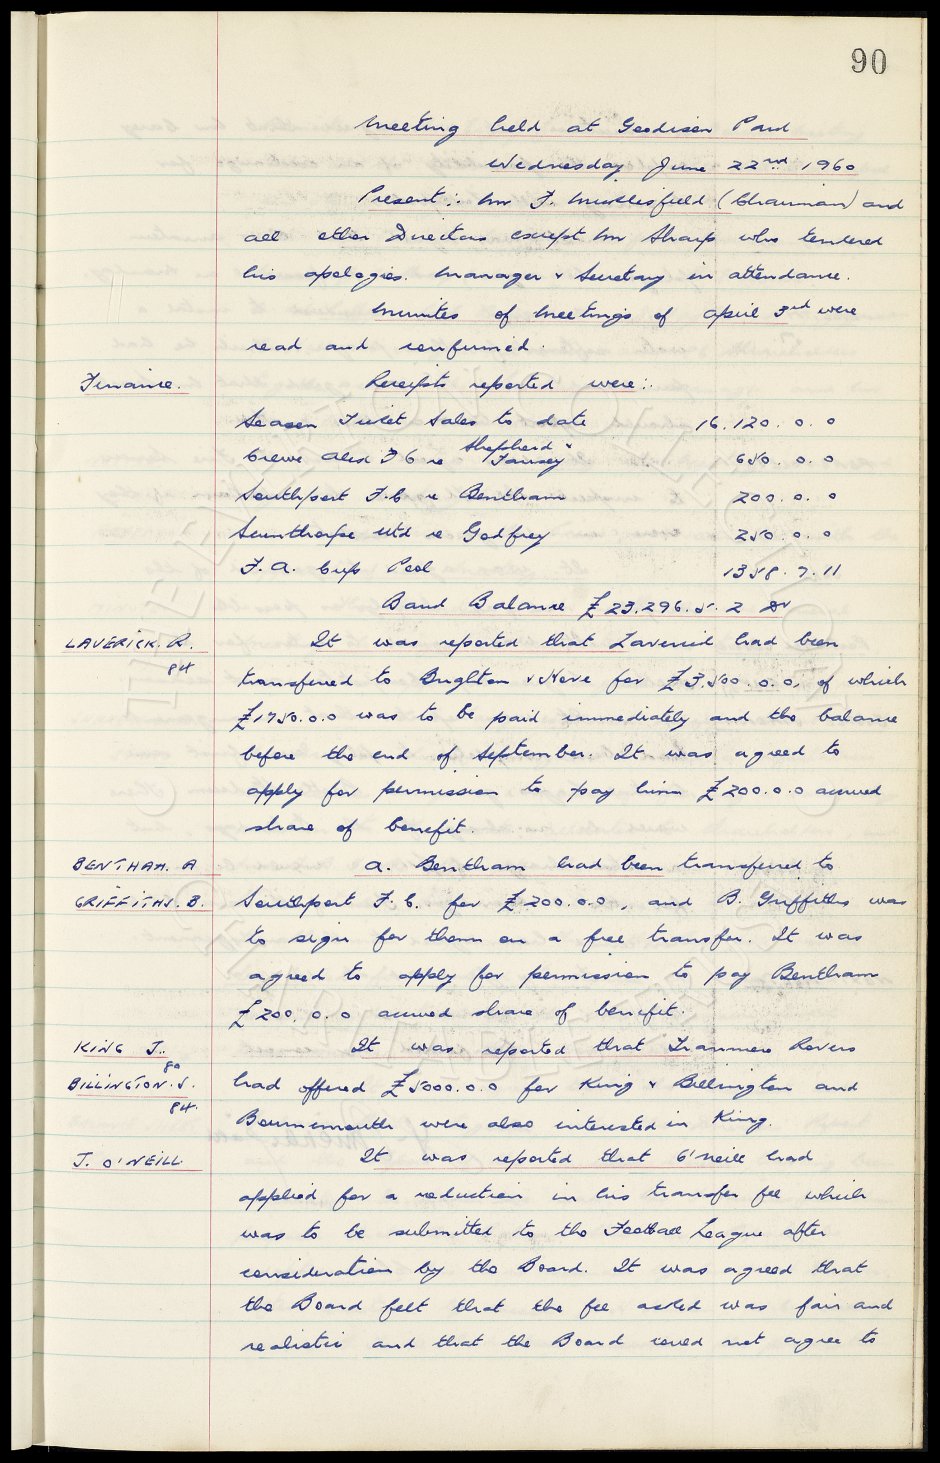 90
Meeting held at Goodison Park
Wednesday June 22nd 1960
Present:. Mr F. Micklesfield (Chairman) and
all other Directors except Mr Sharp who tendered
his apologies. Manager & Secretary in attendance.
Minutes of Meetings of April 3rd were
read and confirmed.
Finance. Receipts reported were:.
Season Ticket Sales to date 16.120.0.0
Crewe Alex F C re Shepherd & Tansey 650.0.0
Southport F.C re Bentham 200.0.0
Scunthorpe Utd re Godfrey 250.0.0
F.A. Cup Pool 1358.7.11
Bank Balance £23.296.5.2 Dr
LAVERICK. R. It was reported that Laverick had been
84 transferred to Brighton & Hove for £3.500.0.0, of which
£1750.0.0 was to be paid immediately and the balance
before the end of September. It was agreed to
apply for permission to pay him £200.0.0 accrued
share of benefit.
BENTHAM. A A. Bentham had been transferred to
GRIFFITHS. B. Southport F.C. for £200.0.0, and B. Griffiths was
to sign for them on a free transfer. It was
agreed to apply for permission to pay Bentham
£200.0.0 accrued share of benefit.
KING J. It was reported that Tranmere Rovers
80
BILLINGTON. S. had offered £5000.0.0 for King & Billington and
84. Bournemouth were also interested in King.
J. O'NEILL It was reported that O'Neill had
applied for a reduction in his transfer fee which
was to be submitted to the Football League after
consideration by the Board. It was agreed that
the Board felt that the fee asked was fair and
realistic and that the Board could not agree to